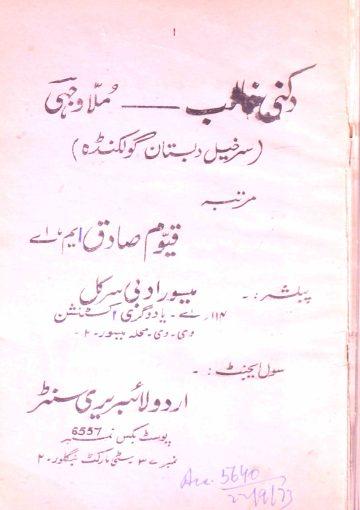 ۱
دکنی غالب — مُلّا وجہی
(سرخیل دبستان گولکنڈہ)
مرتبہ
قیّوم صادق ایم۔ اے
پبلشر:۔ میسور ادبی سرکل
۱۱۴۔ اے۔ یادوگری اکسٹنشن
وی۔ وی۔ محلہ میسور۔ ۲۔
سول ایجنٹ:۔
اردو لائبریری سنٹر
پوسٹ بکس نمبر 6557
نمبر ۳۷۔ سٹی مارکٹ بنگلور۔ ۲
Acc. 5640